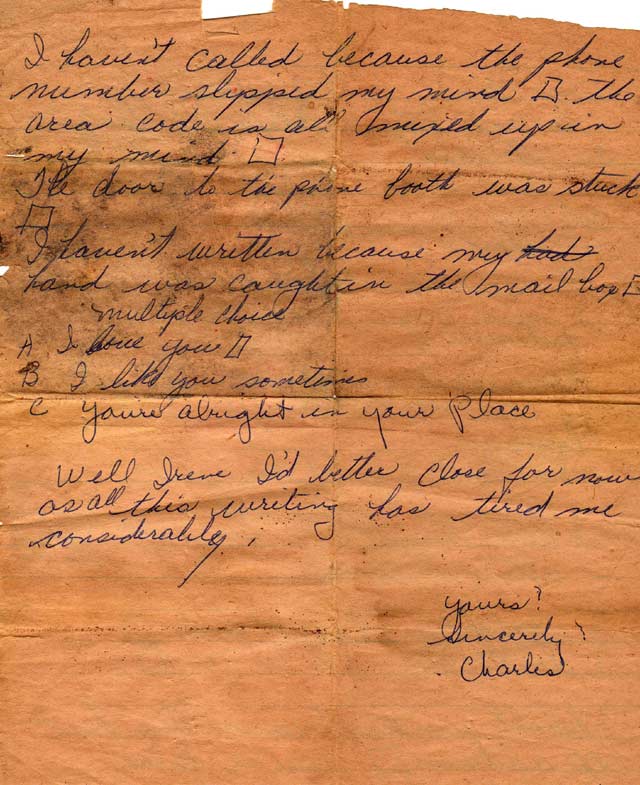 I haven't called because the phone
number slipped my mind □. the
area code is all mixed up in
my mind □
The door to the phone booth was stuck
□
I haven't written because my had
hand was caught in the mail box □
multiple choice
A I love you □
B I like you sometimes
C You're alright in your place
Well Irene I'd better close for now
as all this writing has tired me
considerably,
yours?
Sincerely?
Charlis